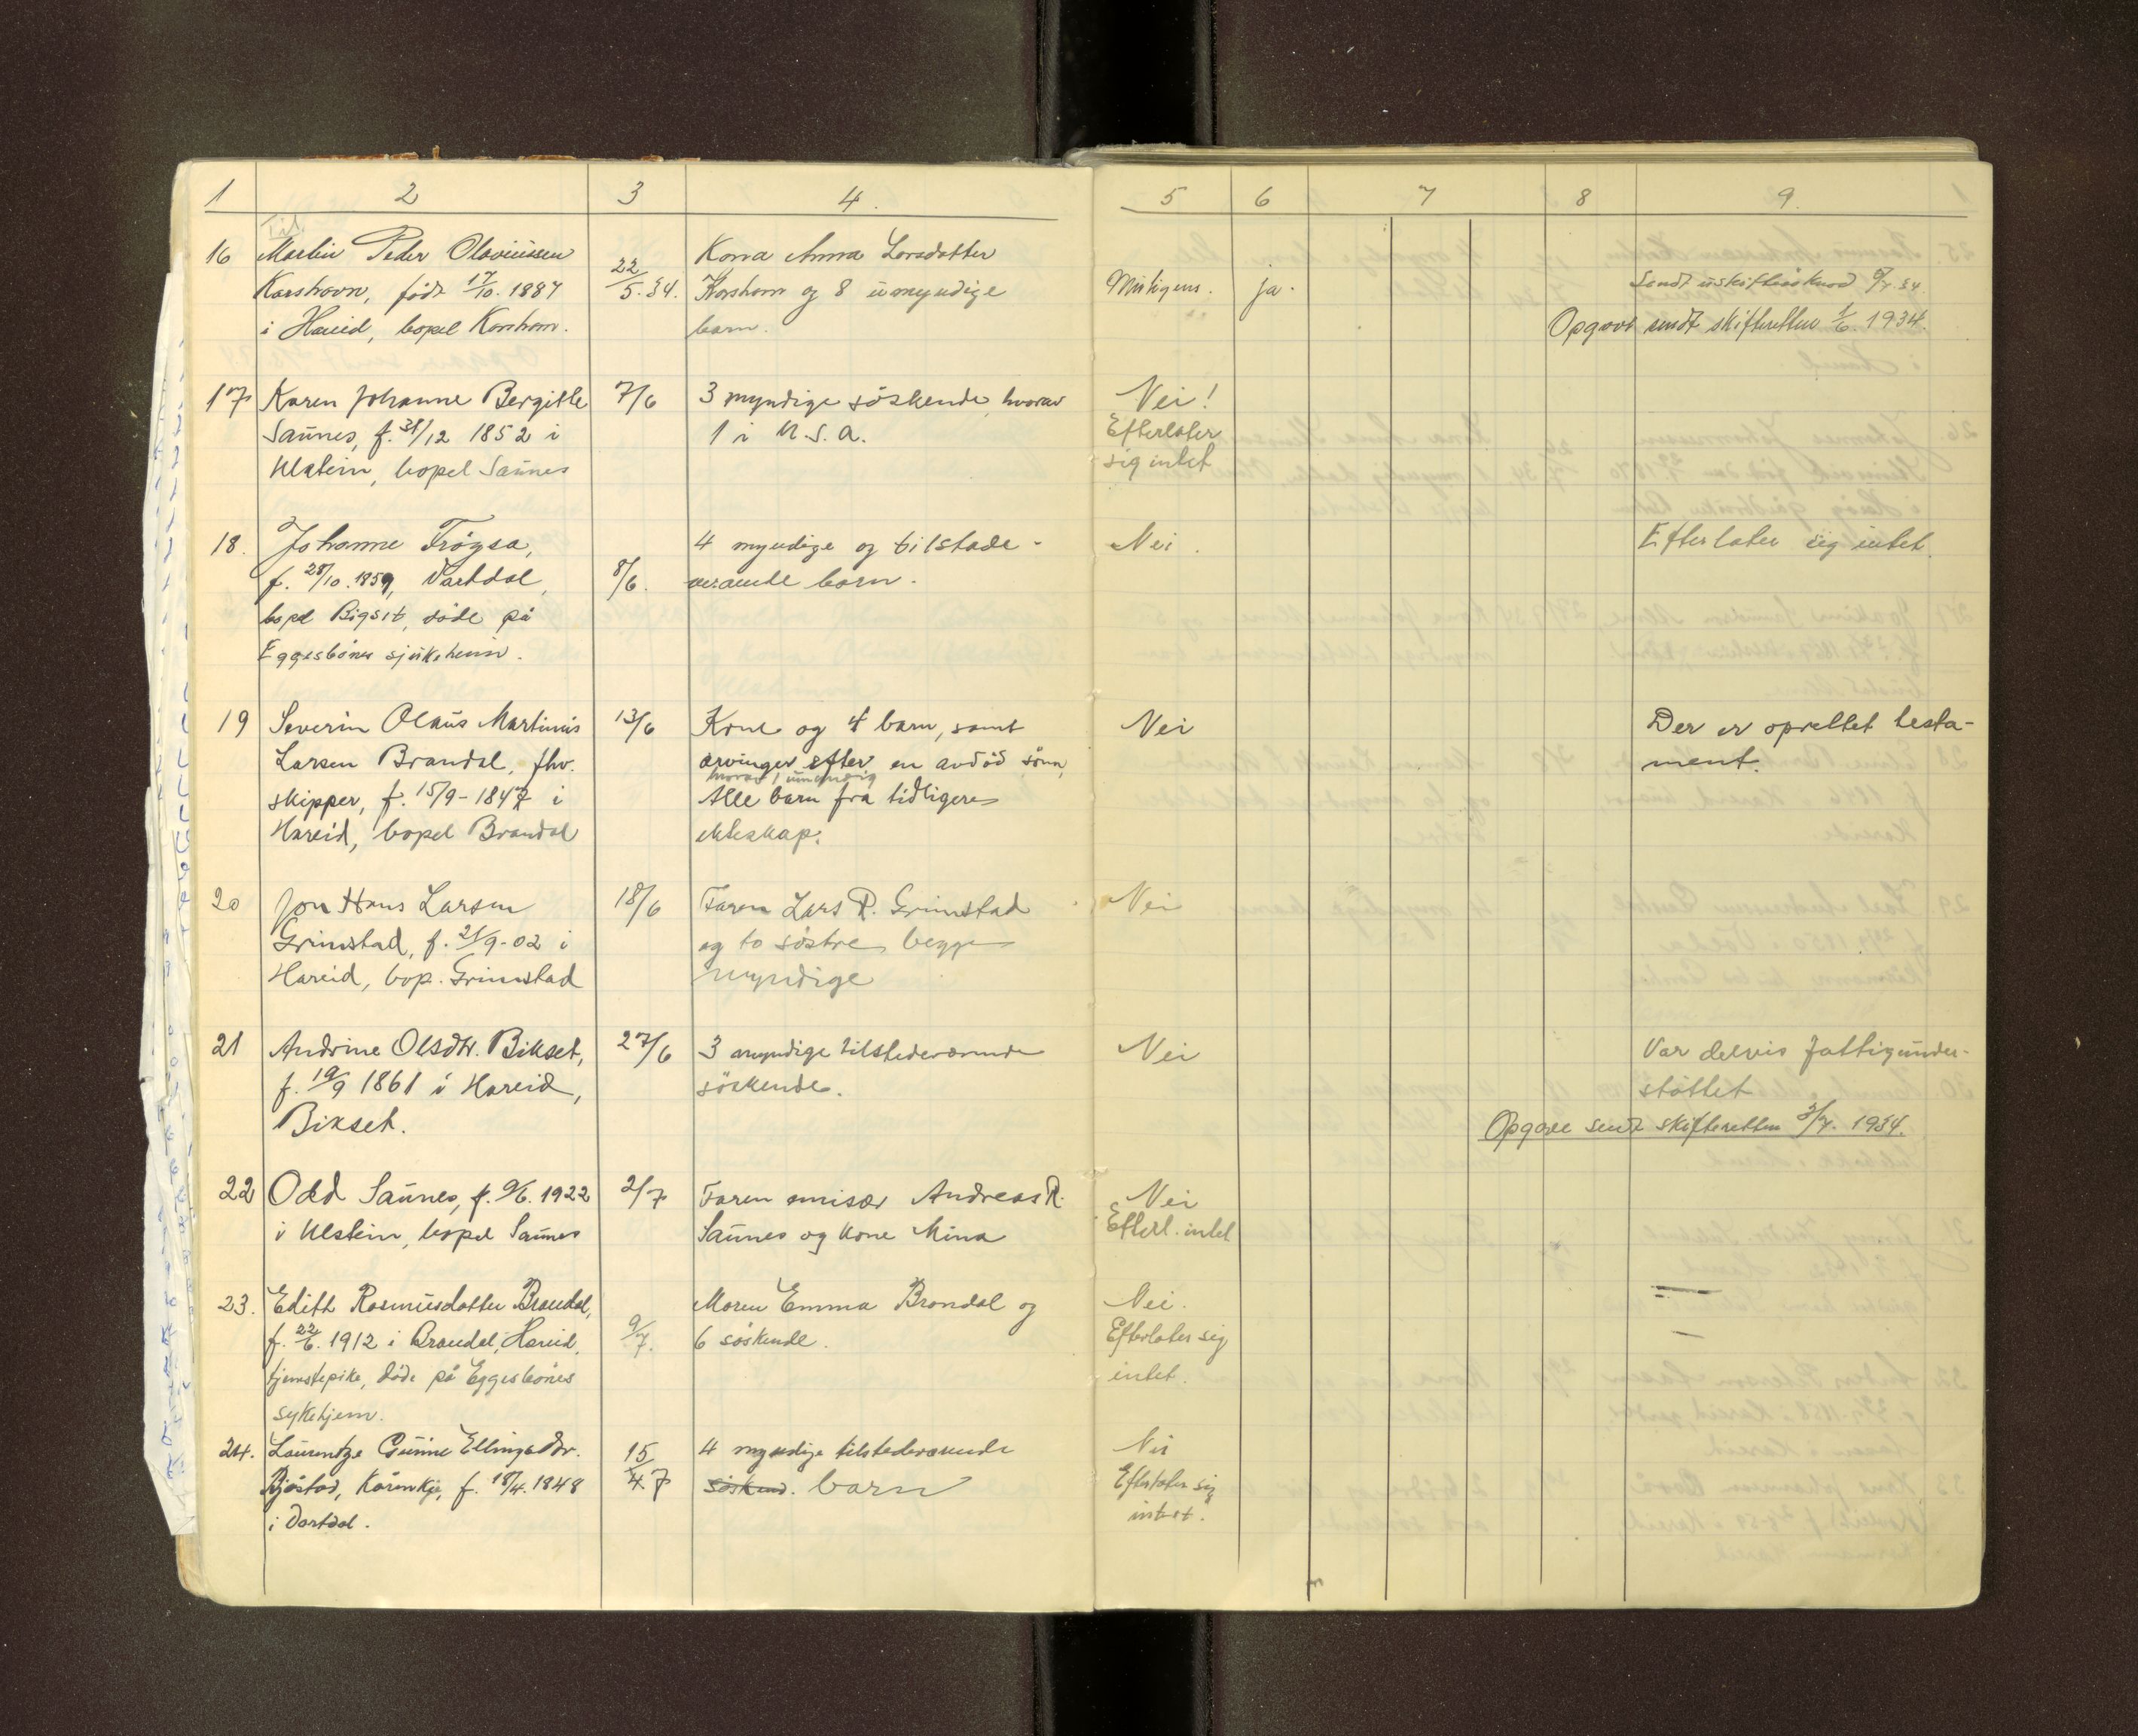 1 2 3 4. 5 6 7 8 9.
Til
16 Martin Peder Olaviussen
Korshavn, födt 17/10. 1887
i Hareid, bopel Korshavn.
22/5.34.
Kona Anna Larsdatter
Korshavn og 8 umyndige
barn.
ja.
Sendt uskifteisknad
Opgave sendt skifteretten 1/6. 1934.
17 Karen Johanne Bergitte
Saunes, f. 31/12 1852 i
Ulstein, bopel Saunes
7/6
3 myndige söskende, hvorav
1 i U.S.A.
Nei!
Efterlater
sig intet
18. Johanne Trögsa,
f. 28/10.1859, Vartdal,
bopel Bigset, döde på
Eggesbönes sjukeheim.
8/6.
4 myndige og tilstade-
verande born.
Nei.
Efterlater sig intet.
19 Severin Olaus Martinus
Larsen Brandal, fhv.
skipper, f. 15/9-1847 i
Hareid, bopel Brandal
13/6
Kone og 4 barn, samt
arvinger efter en avdöd sönn,
hvorav 1 umyndig
Alle barn fra tidligere
ekteskap.
Nei
Der er oprettet testa-
ment.
20 Jon Hans Larsen
Grimstad, f. 21/9-02 i
Hareid, bop. Grimstad
18/6
Faren Lars R. Grimstad
og to söstre, begge
myndige
Nei
21 Andrine Olsdtr. Bikset,
f. 19/9 1861 i Hareid,
Bikset.
27/6
3 myndige tilstedeværende
söskende.
Nei
Var delvis fattigunder-
stöttet
Opgave sendt skifteretten 3/7. 1934.
22 Odd Saunes, f. 9/6. 1922
i Ulstein, bopel Saunes
2/7
Faren emisær Andreas R.
Saunes og kone Mina
Nei
Efterl. intet
23. Edith Rasmusdatter Brandal,
f. 22/6. 1912 i Brandal, Hareid,
tjenestepike, döde på Eggesbönes
sykehjem.
9/7.
Moren Emma Brandal og
6 söskende.
Nei.
Efterlater sig
intet.
24. Laurentze Gurine Ellingsdtr.
Bjåstad, Kårenkje, f. 18/4. 1848
i Vartdal.
15/7
4 myndige tilstedeværende
söskend. barn
Nei
Efterlater sig
intet.